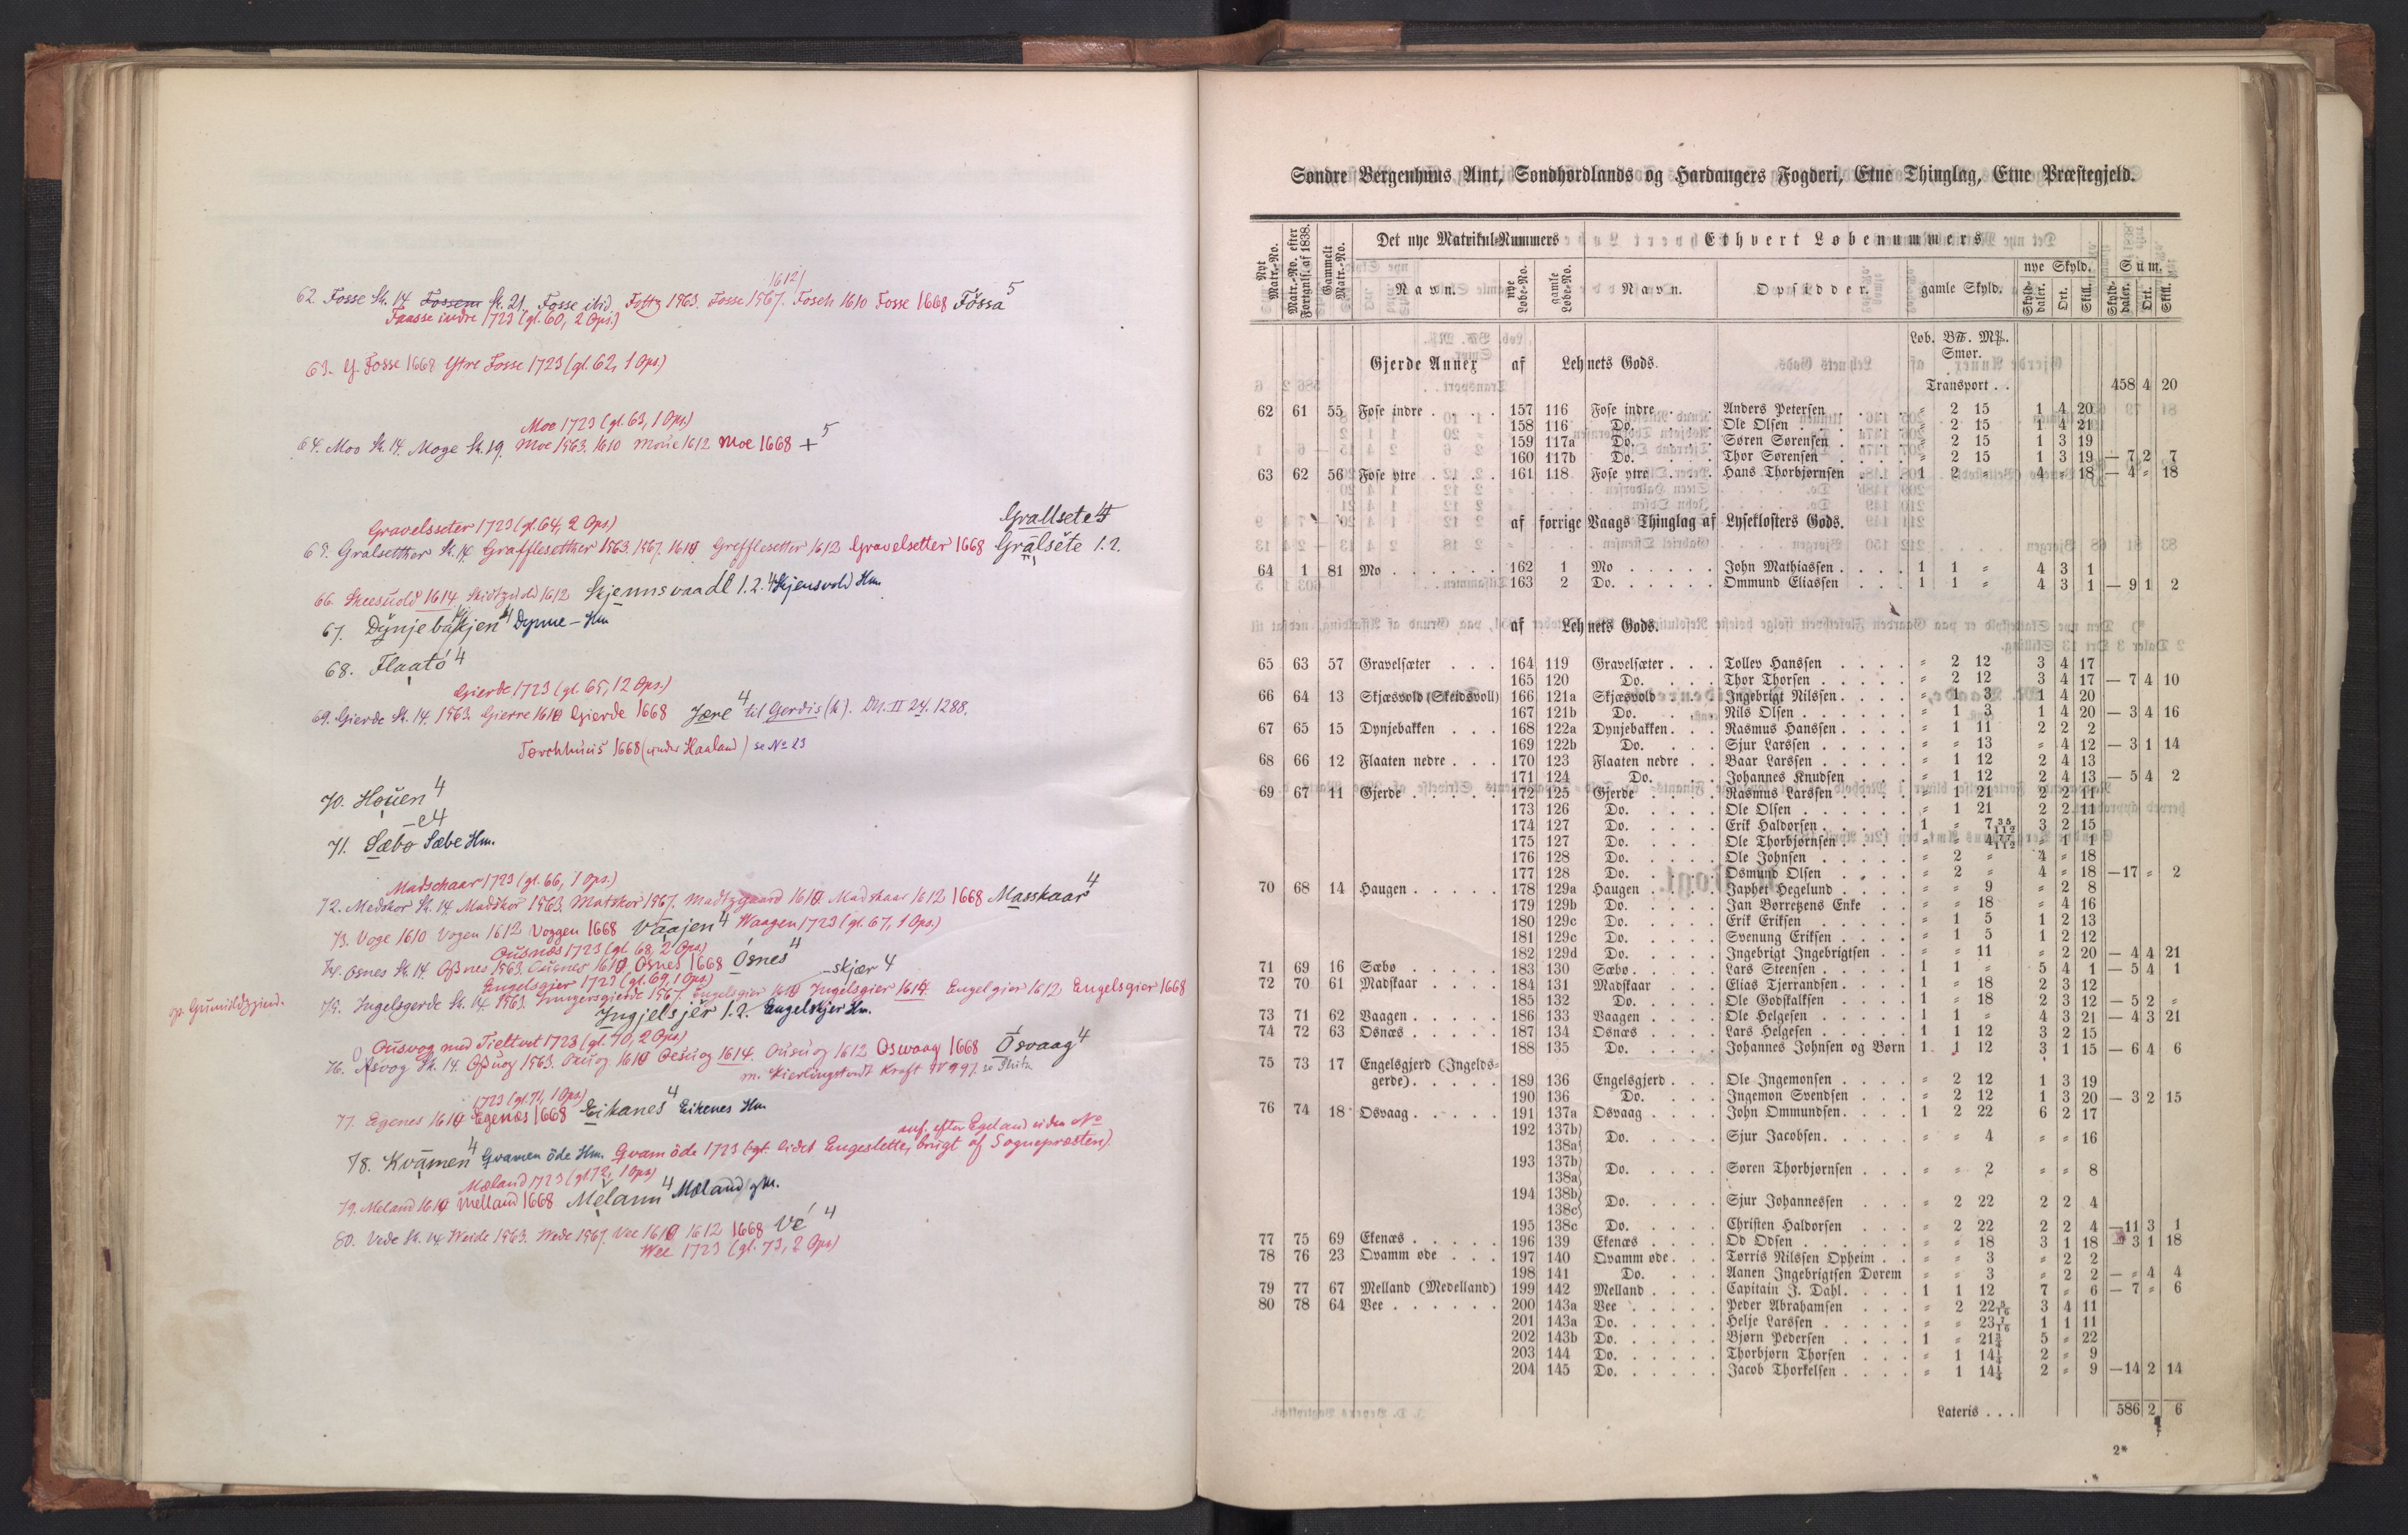 1612
62. Fosse St. 14 Fossem St. 21. Fosse ibid. Fottz 1563. Fosse 1567. Fosch 1610 Fosse 1668 Fössa 5
Faasse indre 1723 (gl. 60, 2 Ops.)
63. Y. Fosse 1668 Ytre Fosse 1723 (gl. 62, 1 Ops.)
Moe 1723 (gl. 63, 1 Ops.)
64. Moo St. 14. Moge St. 19. Moe 1563. 1610 Moue 1612 Moe 1668 + 5
Gravelsseter 1723 (gl. 64, 2 Ops.) Grallsete 4
65. Gralsetther St. 14 Grafflesetther 1563. 1567. 1610 Grefflesetter 1612 Gravelsetter 1668 Grälsète 1.2.
66. Skeesuold 1614. 1612 Skjennsvaadl 1.2. 4 Skjensvold Hm.
67. Dynjebakjen 4 Dynne- Hm
68. Flaató 4
Gierde 1723 (gl. 65, 12 Ops.)
69. Gierde St. 14. 1563. Gierre 1610 Gierde 1668 Jære 4 til Gerdis (k). DN. II 24. 1288.
Torchhuus 1668 (under Haaland) se No 23
70. Houen 4
-e 4
71. Sæbø Sæbe Hm.
Madschaar 1723 (gl. 66, 1 Ops.)
72. Medskor St. 14. Madskor 1563. Matskor 1567. Madtzgaard 1610 Madskaar 1612 1668 Masskaar 4
73. Voge 1610 Vogen 1612 Voggen 1668 Vaajen 4 Waagen 1723 (gl. 67, 1 Ops.)
Ousnæs 1723 (gl. 68, 2 Ops.)
74. Osnes St. 14 Ossnes 1563. Ousnes 1610. Osnes 1668 Ósnes 4
Engelsgier 1723 (gl. 69, 1 Ops.) -skjær 4
75. Ingelsgerde St. 14. 1563. Inngersgierde 1567. Engelsgier 1610 Ingelsgier 1614. Engelgier 1612 Engelsgier 1668
Ingjelsjér 1.2. Engelskjer Hm.
Ousvog med Tieltvet 1723 (gl. 70, 2 Ops)
76. Asvog St. 14. Ossuog 1563. Ouuog 1610 Oesuog 1614. Ousuog 1612 Oswaag 1668 Ósvaag 4
m. Kierlingstvedt Kraft IV 997.
1723 (gl. 71, 1 Ops.)
77. Egenes 1610 Egenæs 1668 Eikanes 4 Eikenes Hm.
anf. efter Egeland uden No
78. Kvämen 4 Qvamen öde Hm. Qvam öde 1723 (gl. lidet Engeslette, brugt af Sognepræsten).
Mæland 1723 (gl. 72, 1 Ops)
79. Meland 1610 Melland 1668 Mélann 4 Mæland Hm.
80. Vede St. 14 Weide 1563. Wede 1567. Vee 1610 1612 1668 Vé 4
Wee 1723 (gl. 73, 2 Ops)
Søndre Bergenhuus Amt, Søndhordlands og Hardangers Fogderi, Etne Thinglag, Etne Præstegjeld.
Nyt Matr.-No. Matr.-No. efter Fortegnls. af 1838. Gammelt Matr.-No. Det nye Matrikul-Nummers Ethvert Løbenummers
Navn. nye Løbe-No. gamle Løbe-No. Navn. Opsidder. gamle Skyld. nye Skyld. Sum.
Skylddaler. Ort. Skill. Skylddaler. Ort. Skill.
Løb. B℔. M℔.
Smør.
Gjerde Annex af Lehnets Gods.
Transport . . 458 4 20
62 61 55 Fose indre . . . . 157 116 Fose indre . . . Anders Petersen . . . . = 2 15 1 4 20
158 116 Do. . . . Ole Olsen . . . . = 2 15 1 4 21
159 117a Do. . . . Søren Sørensen . . . . = 2 15 1 3 19
160 117b Do. . . . Thor Sørensen . . . . = 2 15 1 3 19 — 7 2 7
63 62 56 Fose ytre . . . . 161 118 Fose ytre . . . Hans Thorbjørnsen . . 1 2 = 4 = 18 — 4 = 18
af forrige Vaags Thinglag af Lyseklosters Gods.
64 1 81 Mo . . . . . . 162 1 Mo . . . . . John Mathiassen . . . . 1 1 = 4 3 1
163 2 Do. . . . . . Ommund Eliassen . . . 1 1 = 4 3 1 — 9 1 2
af Lehnets Gods.
65 63 57 Gravelsæter . . . 164 119 Gravelsæter . . . Tollev Hanssen . . . . = 2 12 3 4 17
165 120 Do. . . . Thor Thorsen . . . . . = 2 12 3 4 17 — 7 4 10
66 64 13 Skjæsvold (Skeidsvoll) 166 121a Skjæsvold . . . Ingebrigt Nilssen . . . . = 1 3 1 4 20
167 121b Do. . . . Nils Olsen . . . . . . = 1 3 1 4 20 — 3 4 16
67 65 15 Dynjebakken . . . 168 122a Dynjebakken . . . Rasmus Hanssen . . . . = 1 11 2 2 2
169 122b Do. . . . Sjur Larssen . . . . . = = 13 = 4 12 — 3 1 14
68 66 12 Flaaten nedre . . . 170 123 Flaaten nedre . . Baar Larssen . . . . . = 1 12 2 4 13
171 124 Do. . . Johannes Knudsen . . . = 1 12 2 4 13 — 5 4 2
69 67 11 Gjerde . . . . . 172 125 Gjerde . . . . Rasmus Larssen . . . . = 1 21 2 2 11
173 126 Do. . . . . Ole Olsen . . . . . = 1 21 2 2 11
174 127 Do. . . . . Erik Haldorsen . . . . . 1 = 7 35/112 3 2 15
175 127 Do. . . . . Ole Thorbjørnsen . . . . = = 4 77/112 = 1 1
176 128 Do. . . . . Ole Johnsen . . . . . = 2 = 4 = 18
177 128 Do. . . . . Osmund Olsen . . . . = 2 = 4 = 18 —17 = 2
70 68 14 Haugen . . . . . 178 129a Haugen . . . . Japhet Hegelund . . . . = = 9 = 2 8
179 129b Do. . . . . Jan Børretzens Enke . . = = 18 = 4 16
180 129c Do. . . . . Erik Eriksen . . . . . = 1 5 1 2 13
181 129c Do. . . . . Svenung Eriksen . . . . = 1 5 1 2 12
182 129d Do. . . . . Ingebrigt Ingebrigtsen . . = = 11 = 2 20 — 4 4 21
71 69 16 Sæbø . . . . . 183 130 Sæbø . . . . . Lars Steensen . . . . . 1 1 = 5 4 1 — 5 4 1
72 70 61 Madskaar . . . . 184 131 Madskaar . . . Elias Tjerrandsen . . . . 1 = 18 2 3 12
185 132 Do. . . . . Ole Godskalksen . . . . 1 = 18 2 3 12 — 5 2 =
73 71 62 Vaagen . . . . . 186 133 Vaagen . . . . Ole Helgesen . . . . . 1 1 = 4 3 21 — 4 3 21
74 72 63 Osnæs . . . . . 187 134 Osnæs . . . . Lars Helgesen . . . . . 1 1 12 3 2 15
188 135 Do. . . . . Johannes Johnsen og Børn 1 1 12 3 1 15 — 6 4 6
75 73 17 Engelsgjerd (Ingelds-
gerde) . . . . . 189 136 Engelsgjerd . . . Ole Ingemonsen . . . . = 2 12 1 3 19
190 136 Do. . . . Ingemon Svendsen . . . = 2 12 1 3 20 — 3 2 15
76 74 18 Osvaag . . . . . 191 137a Osvaag . . . . John Ommundsen . . . . 1 2 22 6 2 17
192 137b} 138a} Do. . . . . Sjur Jacobsen . . . . . = = 4 = = 16
193 137b} 138a} Do. . . . . Søren Thorbjørnsen . . . = = 2 = = 8
194 138b} 138c} Do. . . . . Sjur Johannessen . . . = 2 22 2 2 4
195 138c Do. . . . . Christen Haldorsen . . . = 2 22 2 2 4 —11 3 1
77 75 69 Ekenæs . . . . . 196 139 Ekenæs . . . . Od Odsen . . . . . . = = 18 3 1 18 — 3 1 18
78 76 23 Qvamm øde . . . 197 140 Qvamm øde . . . Torris Nilssen Opheim . . = = 3 = 2 2
198 141 Do. . . . Aanen Ingebrigtsen Dørem = = 3 = 2 2 — = 4 4
79 77 67 Melland (Medelland) 199 142 Melland . . . . Capitain J. Dahl . . . . 1 1 12 7 = 6 — 7 = 6
80 78 64 Vee . . . . . . 200 143a Vee . . . . . Peder Abrahamsen . . . = 2 22 5/16 3 4 11
201 143a Do. . . . . . Helje Larssen . . . . . = = 23 7/16 1 1 11
202 143b Do. . . . . . Bjørn Pedersen . . . . 1 = 21 3/4 5 = 22
203 144 Do. . . . . . Thorbjørn Thorsen . . . = 1 14 1/4 2 = 9
204 145 Do. . . . . . Jacob Thorkelsen . . . . = 1 14 1/4 2 = 9 —14 2 14
Lateris . . . 586 2 6
2*